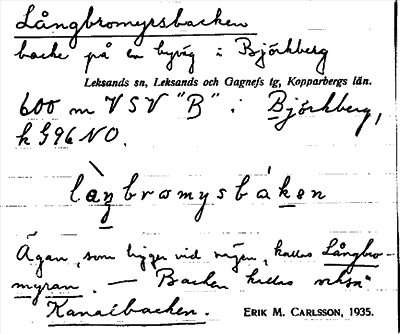 Långbromyrsbacken
backe på en byväg i Björkberg
Leksands sn, Leksands och Gagnefs tg, Kopparbergs län.
600 m VSV "B" i Björkberg,
k G96 NO.
làŋbromysbáken
Ägan, som ligger vid vägen, kallas Långbro-
myran. — Backen kallas också
Kanalbacken.
ERIK M. CARLSSON, 1935.